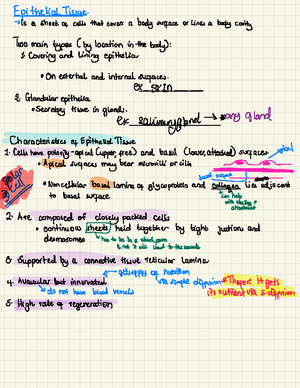 Epithelial Tissue
- Is a sheet of cells that cover a body surface or lines a body cavity
Two main types (by location in the body):
1. Covering and lining epithelia
• On external and internal surfaces.
ex. skin
2. Glandular epithelia
• Secretory tissue in glands.
ex. salivary gland → any gland
Characteristics of Epithelial Tissue
1. Cells have polarity - apical (upper, free) and basal (lower, attached) surfaces
apical
• Apical surfaces may bear microvilli or cilia
basal surface
• Noncellular basal lamina of glycoproteins and collagen lies adjacent
to basal surface
can help
with
attachment
2. Are composed of closely packed cells
• continuous sheets held together by tight junctions and
desmosomes
has to be in a sheet form
3. Supported by a connective tissue reticular lamina
4. Avascular but innervated
gets supply of nutrition
via simple diffusion
Therefore it gets
its nutrient via s. diffusion
do not have blood vessels
5. High rate of regeneration